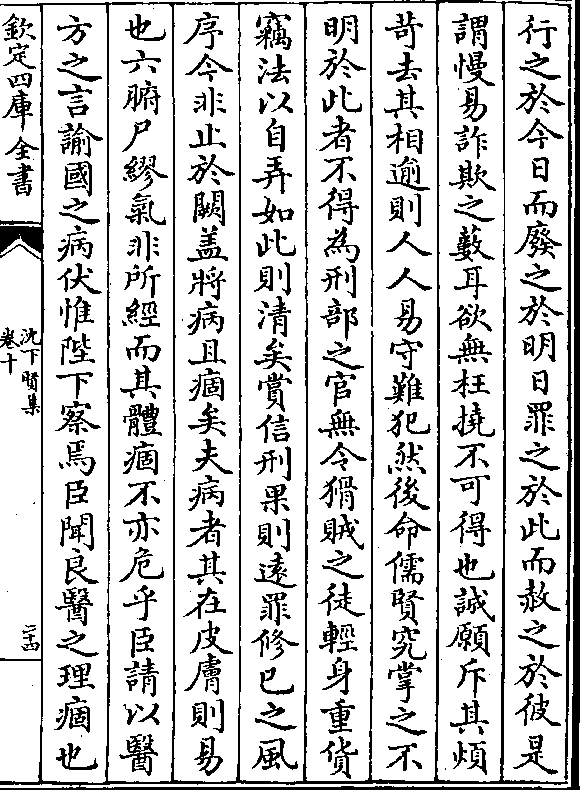 行之於今日而廢之於明日罪之於此而赦之於彼是
謂慢易詐欺之藪耳欲無枉撓不可得也誠願斥其煩
苛去其相逾則人人易守難犯然後命儒賢究掌之不
明於此者不得為刑部之官無令猾賊之徒輕身重貨
竊法以自弄如此則清矣賞信刑果則遠罪修已之風
序今非止於闕盖將病且痼矣夫病者其在皮膚則易
也六腑尸繆氣非所經而其體痼不亦危乎臣請以醫
方之言諭國之病伏惟陛下察焉臣聞良醫之理痼也
欽定四庫全書
沈下賢集
卷十
二十四